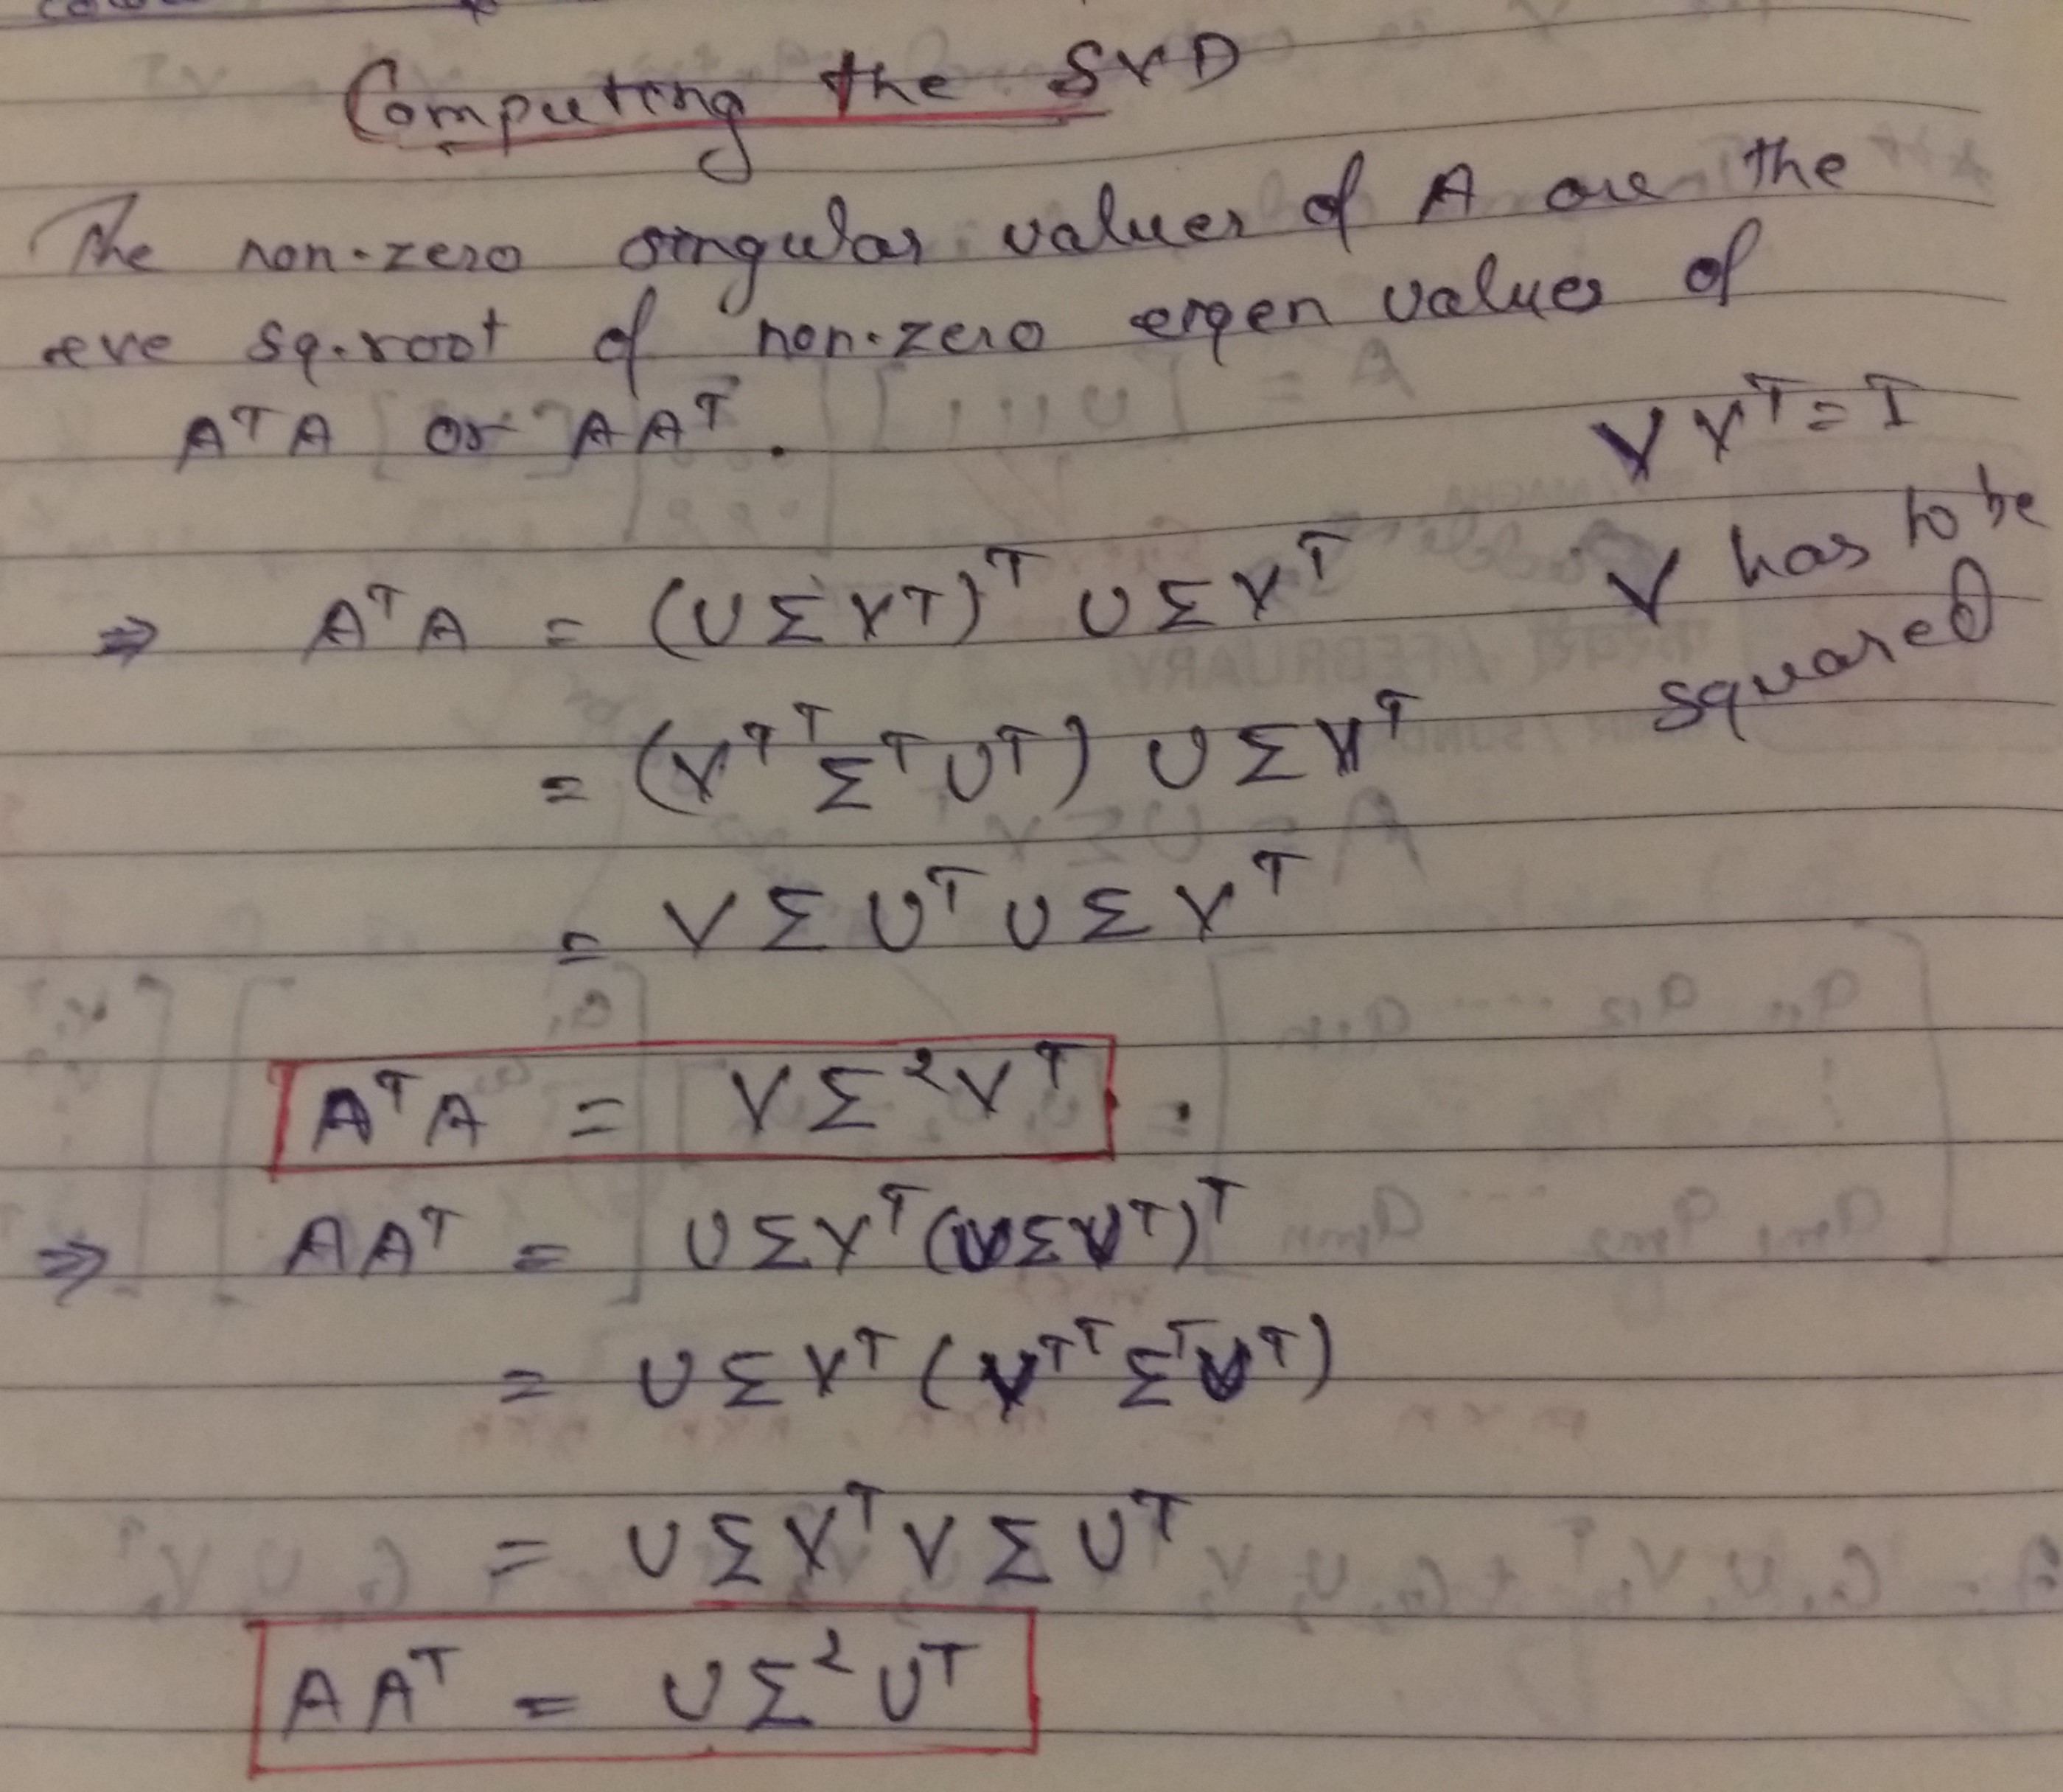 Computing the SVD
The non-zero singular values of A are the
+ve sq.root of non-zero eigen values of
AᵀA or AAᵀ.
V Vᵀ = I
V has to be
squared
⇒ AᵀA = (U Σ Vᵀ)ᵀ U Σ Vᵀ
= (Vᵀᵀ Σᵀ Uᵀ) U Σ Vᵀ
= V Σ Uᵀ U Σ Vᵀ
AᵀA = V Σ² Vᵀ .
⇒ AAᵀ = U Σ Vᵀ (U Σ Vᵀ)ᵀ
= U Σ Vᵀ (Vᵀᵀ Σᵀ Uᵀ)
= U Σ Vᵀ V Σ Uᵀ
AAᵀ = U Σ² Uᵀ